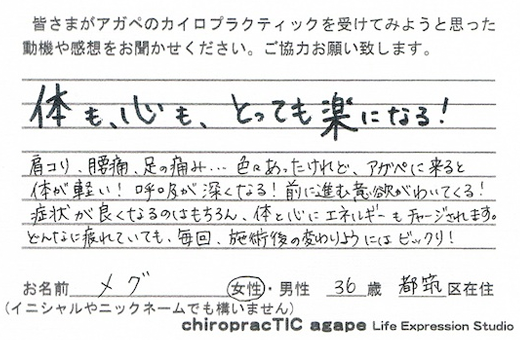 皆さまがアガペのカイロプラクティックを受けてみようと思った
動機や感想をお聞かせください。ご協力お願い致します。
体も、心も、とっても楽になる!
肩コリ、腰痛、足の痛み… 色々あったけれど、アガペに来ると
体が軽い! 呼吸が深くなる! 前に進む意欲がわいてくる!
症状が良くなるのはもちろん、体と心にエネルギーもチャージされます。
どんなに疲れていても、毎回、施術後の変わりようにはビックリ!
お名前 メグ 女性・男性 36歳 都筑区在住
(イニシャルやニックネームでも構いません)
chiropracTIC agape Life Expression Studio